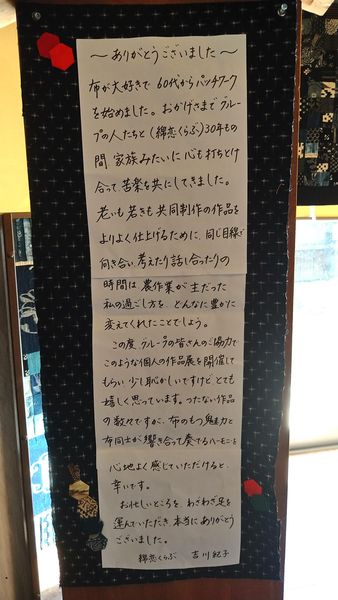 ～ありがとうございました～
布が大好きで 60代からパッチワーク
を始めました。おかげさまでグルー
プの人たちと(綿恋くらぶ)30年もの
間 家族みたいに心も打ちとけ
合って 苦楽を共にしてきました。
老いも若きも 共同制作の作品を
よりよく仕上げるために、同じ目線で
向き合い、考えたり話し合ったりの
時間は 農作業が主だった
私の過ごし方を、どんなに豊かに
変えてくれたことでしょう。
この度 グループの皆さんのご協力で
このような個人の作品展を開催して
もらい 少し恥かしいですけど、とても
嬉しく思っています。つたない作品
の数々ですが、布のもつ魅力と
布同士が響き合って奏でるハーモニーを
心地よく感じていただけると、
幸いです。
お忙しいところを、わざわざ足を
運んでいただき 本当にありがとう
ございました。
綿恋くらぶ 吉川紀子